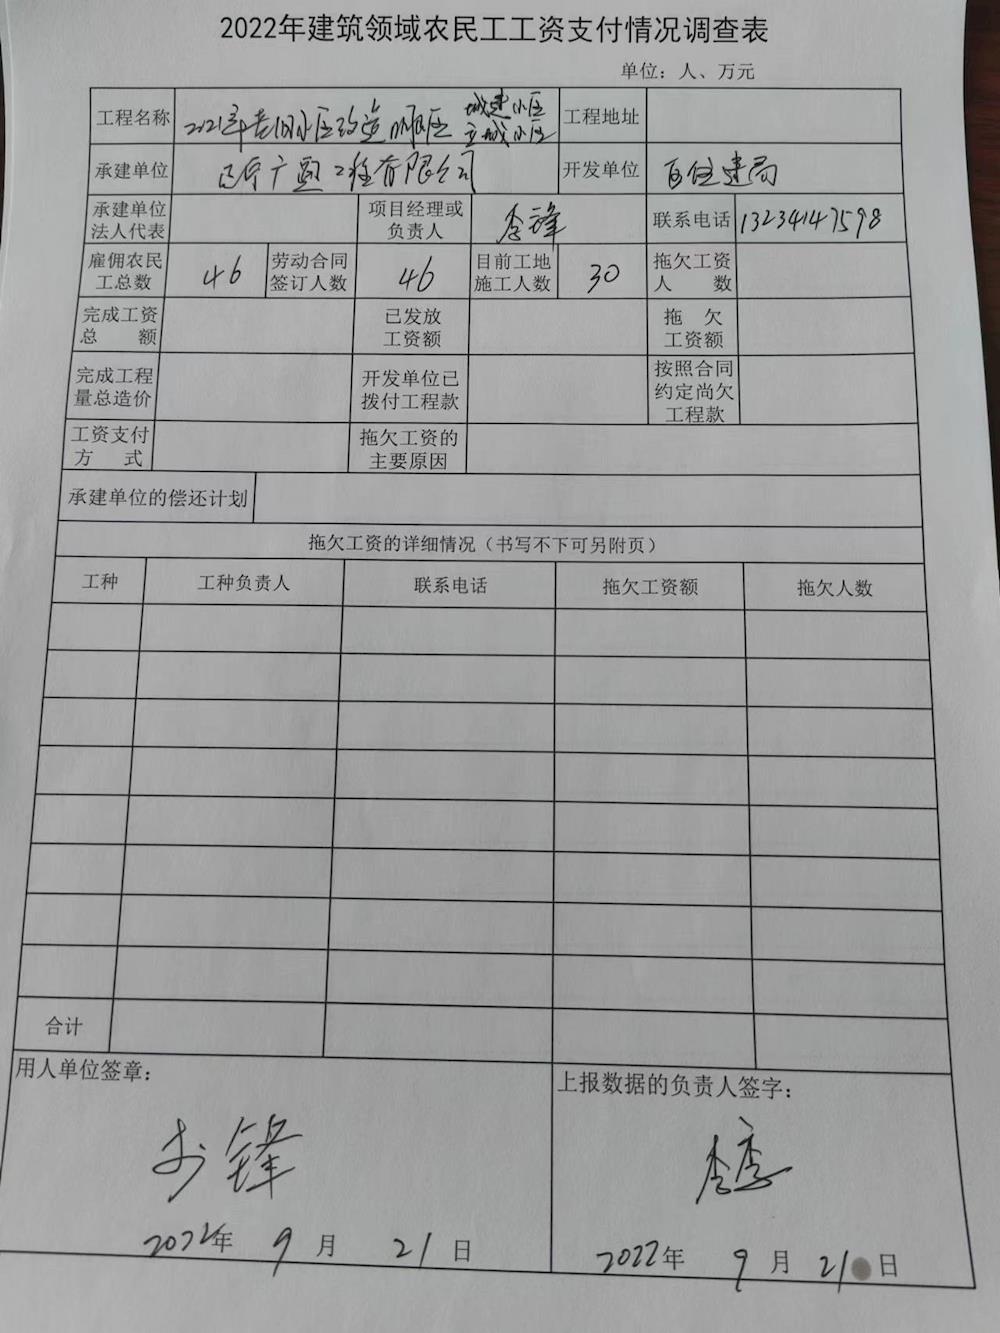 2022年建筑领域农民工工资支付情况调查表
单位：人、万元
工程名称 2021年老旧小区改造 城建小区 工程地址
主城小区
承建单位 广 工程有限公司 开发单位 区住建局
承建单位法人代表 项目经理或负责人 李锋 联系电话 13234147598
雇佣农民工总数 46 劳动合同签订人数 46 目前工地施工人数 30 拖欠工资人数
完成工资总额 已发放工资额 拖欠工资额
完成工程量总造价 开发单位已拨付工程款 按照合同约定尚欠工程款
工资支付方式 拖欠工资的主要原因
承建单位的偿还计划
拖欠工资的详细情况（书写不下可另附页）
工种 工种负责人 联系电话 拖欠工资额 拖欠人数
合计
用人单位签章： 上报数据的负责人签字：
锋 李
2022年 9 月 21 日 2022年 9 月 21 日